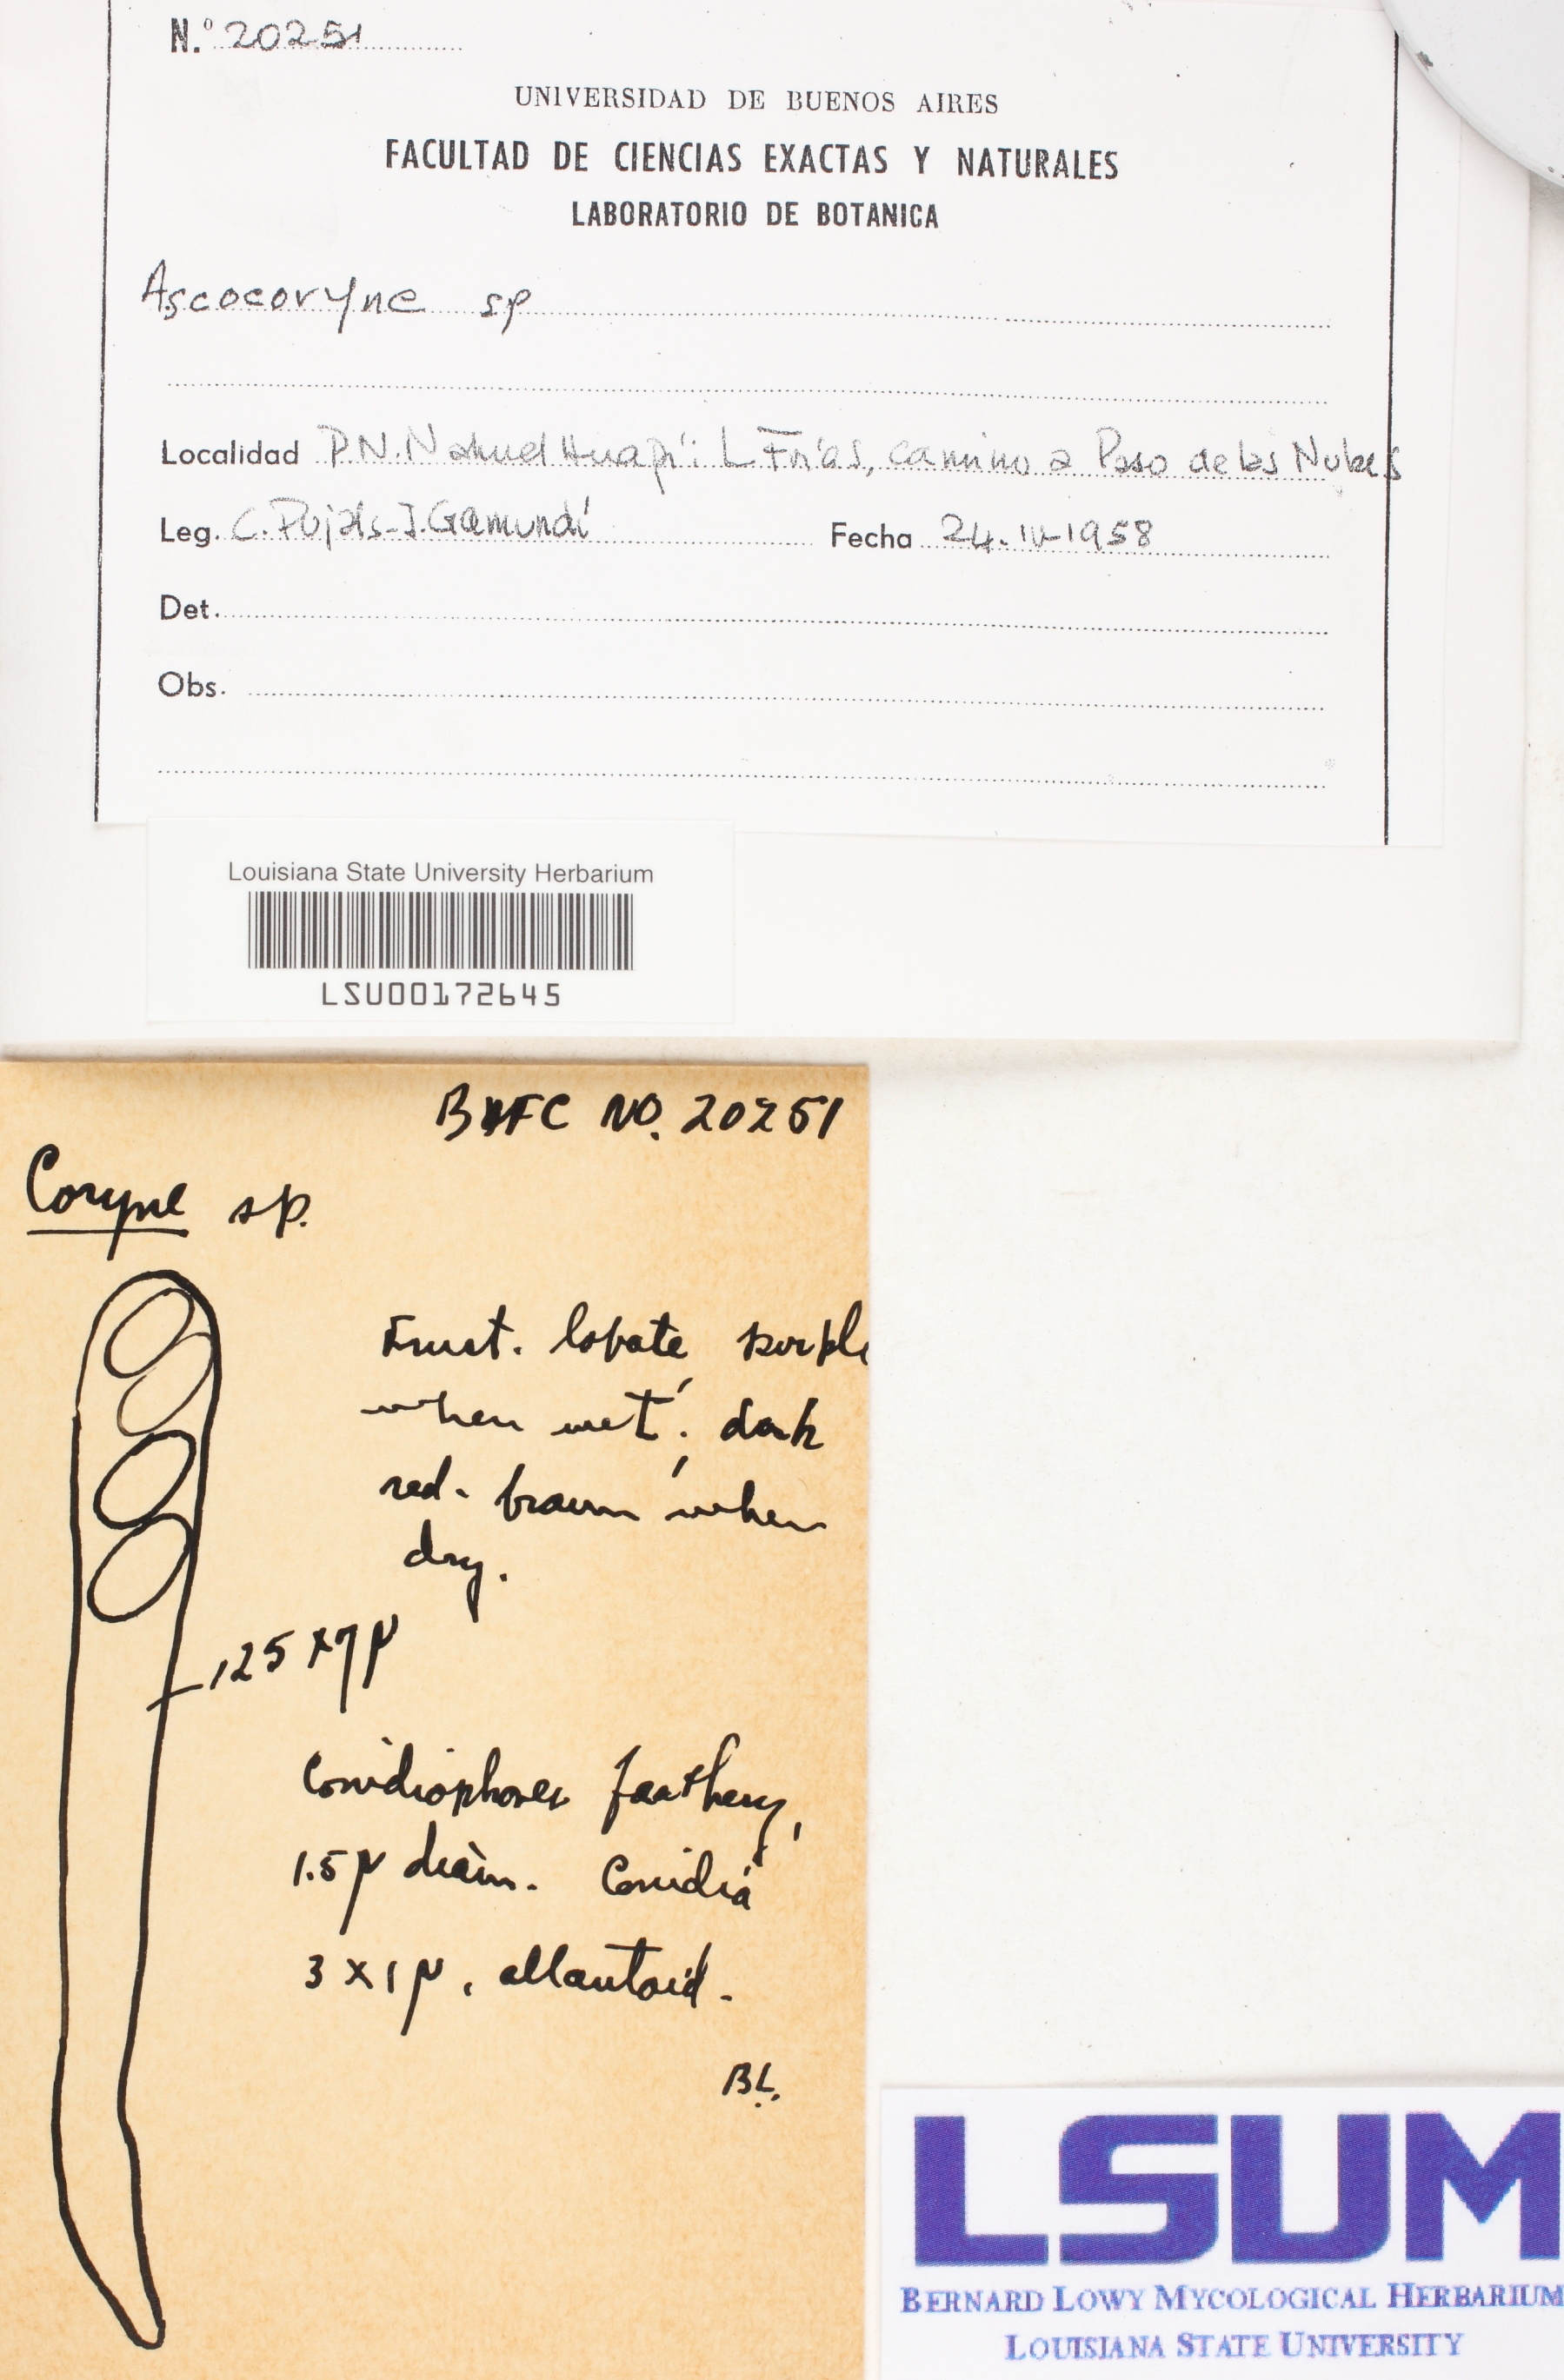 N.º 20251
UNIVERSIDAD DE BUENOS AIRES
FACULTAD DE CIENCIAS EXACTAS Y NATURALES
LABORATORIO DE BOTANICA
Ascocoryne sp
Localidad P.N. Nahuel Huapi: L Frías, camino a Paso de las Nubes
Leg. C. Pujals - I. Gamundí Fecha 24-IV-1958
Det.
Obs.
Louisiana State University Herbarium
LSU00172645
BAFC NO. 20251
Coryne sp.
Fruct. lobate, purple
when wet; dark
red-brown when
dry.
125 x 7 μ
Conidiophores feathery,
1.5 μ diam. Conidia
3 x 1 μ, allantoid.
BL.
LSUM
BERNARD LOWY MYCOLOGICAL HERBARIUM
LOUISIANA STATE UNIVERSITY